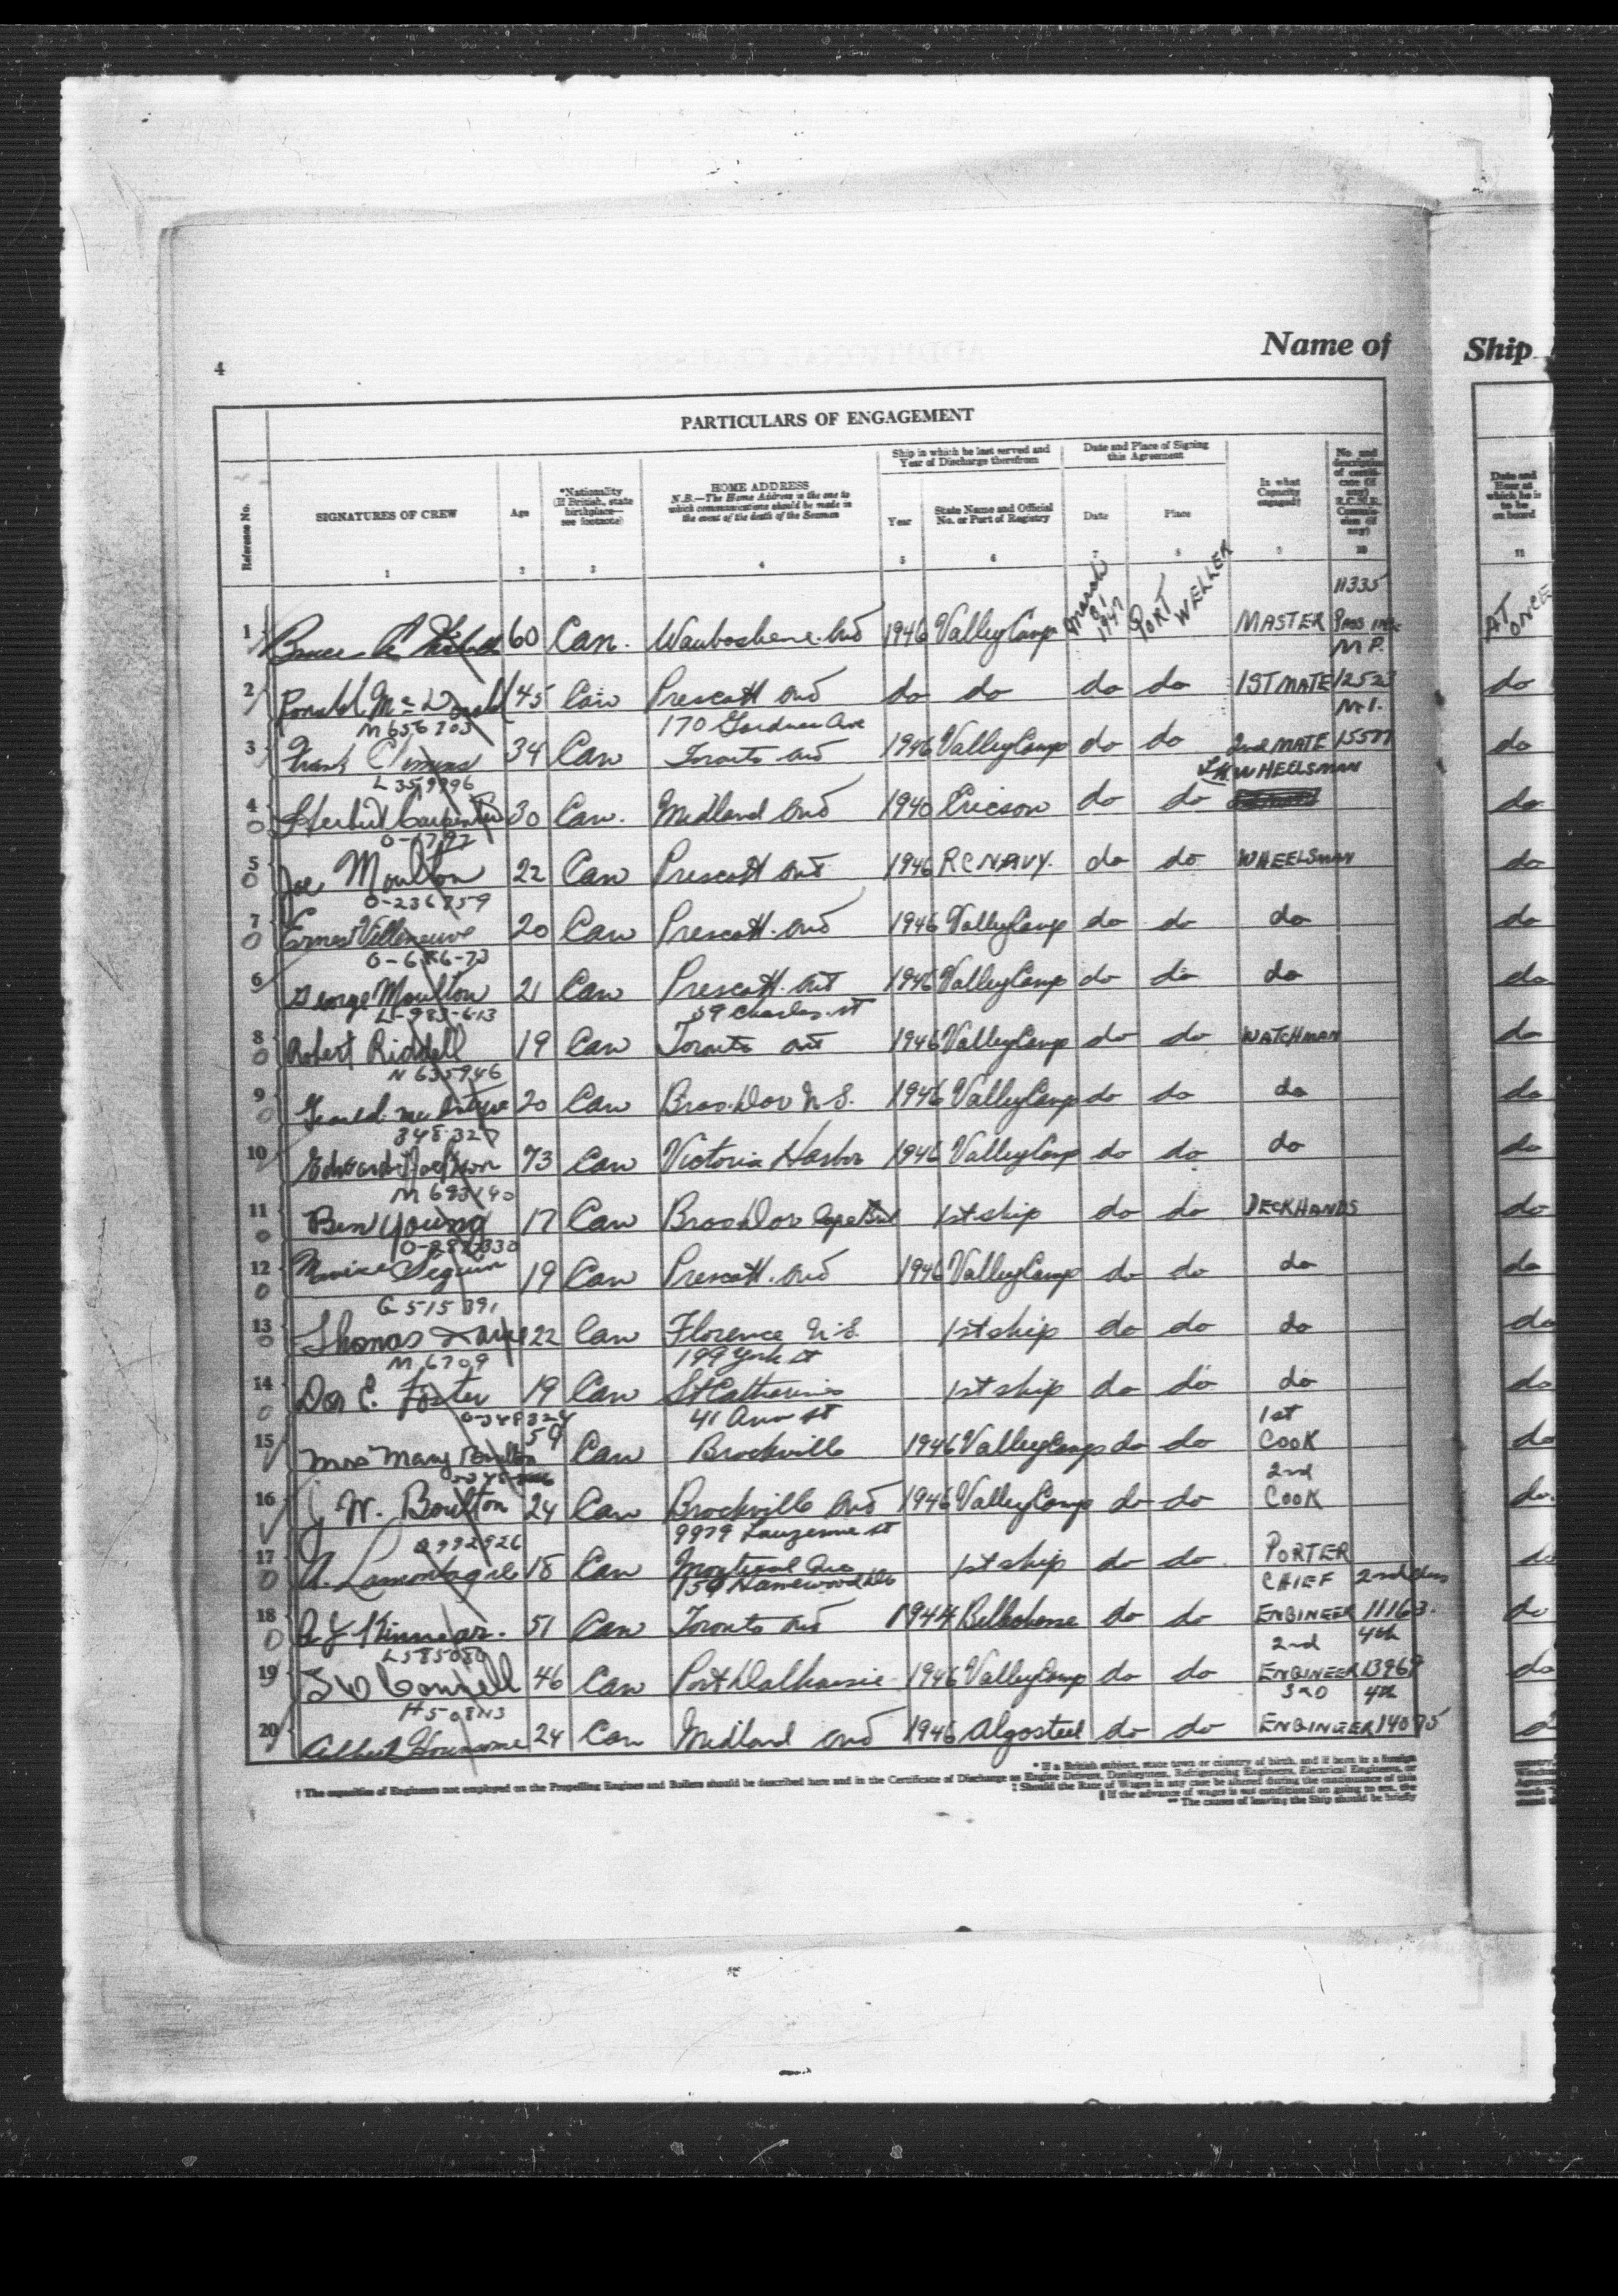 4
Name of
Ship
PARTICULARS OF ENGAGEMENT
Reference No.
SIGNATURES OF CREW
Age
*Nationality (If British, state birthplace—see footnote)
HOME ADDRESS
N.B.—The Home Address is the one to which communications should be made in the event of the death of the Seaman
Ship in which he last served and Year of Discharge therefrom
Year
State Name and Official No. or Port of Registry
Date and Place of Signing this Agreement
Date
Place
In what Capacity engaged†
No. and description of certificate (if any) R.C.N.R. Commission (if any)
Date and Hour at which he is to be on board
1 2 3 4 5 6 7 8 9 10 11
11335
1 Bruce 60 Can. Waubashene Ont 1946 Valley Camp March 31 1947 PORT WELLER MASTER Pass AT ONCE
M P.
2 Ronald McDonald 45 Can Prescott Ont do do do do 1ST MATE 12523 do
M 656703 170 Gardner Ave
3 Frank 34 Can Toronto Ont 1946 Valley Camp do do 2nd MATE 15577 do
WHEELSMAN
4 Herbert Carpenter 30 Can. Midland Ont 1940 Ericson do do do
5 Joe Moulton 22 Can Prescott Ont 1946 RC NAVY. do do WHEELSMAN do
7 Ernest Villeneuve 20 Can Prescott. Ont 1946 Valley Camp do do do do
6 George Moulton 21 Can Prescott. Ont 1946 Valley Camp do do do do
L-983-613 59 Charles. st
8 Robert Riddell 19 Can Toronto Ont 1946 Valley Camp do do WATCHMAN do
N 635946
9 20 Can Bras. Dor N.S. 1946 Valley Camp do do do do
348 327
10 Edward Jackson 73 Can Victoria Harbor 1946 Valley Camp do do do do
M 693140
11 Ben Young 17 Can Bras Dor Cape 1st ship do do DECKHANDS do
12 Seguin 19 Can Prescott. Ont 1946 Valley Camp do do do do
G 515 391
13 Thomas 22 Can Florence N.S. 1st ship do do do do
M 6709 199 York St
14 Don E. Foster 19 Can St Catherines 1st ship do do do do
0-348324 41 Ann St 1st
15 Mrs Mary Boulton 59 Can Brockville 1946 Valley Camp do do COOK do
2nd
16 W. Boulton 24 Can Brockville Ont 1946 Valley Camp do do COOK do.
9979 st
17 Lamontagne 18 Can Montreal Que 1st ship do do PORTER do
159 Homewood CHIEF 2nd class
18 Kinnear. 51 Can Toronto Ont 1944 do do ENGINEER 11163. do
L585080 2nd 4th
19 Connell 46 Can Port Dalhousie 1946 Valley Camp do do ENGINEER 13969 do
3RD 4th
20 Albert 24 Can Midland Ont 1946 Algosteel do do ENGINEER 14075
* If a British subject, state town or country of birth, and if born in a foreign
† The capacities of Engineers not employed on the Propelling Engines and Boilers should be described here and in the Certificate of Discharge as Engine Drivers, Donkeymen, Refrigerating Engineers, Electrical Engineers, or
‡ Should the Rate of Wages in any case be altered during the continuance of this
§ If the advance of wages is not conditional on going to sea, the
** The causes of leaving the Ship should be briefly